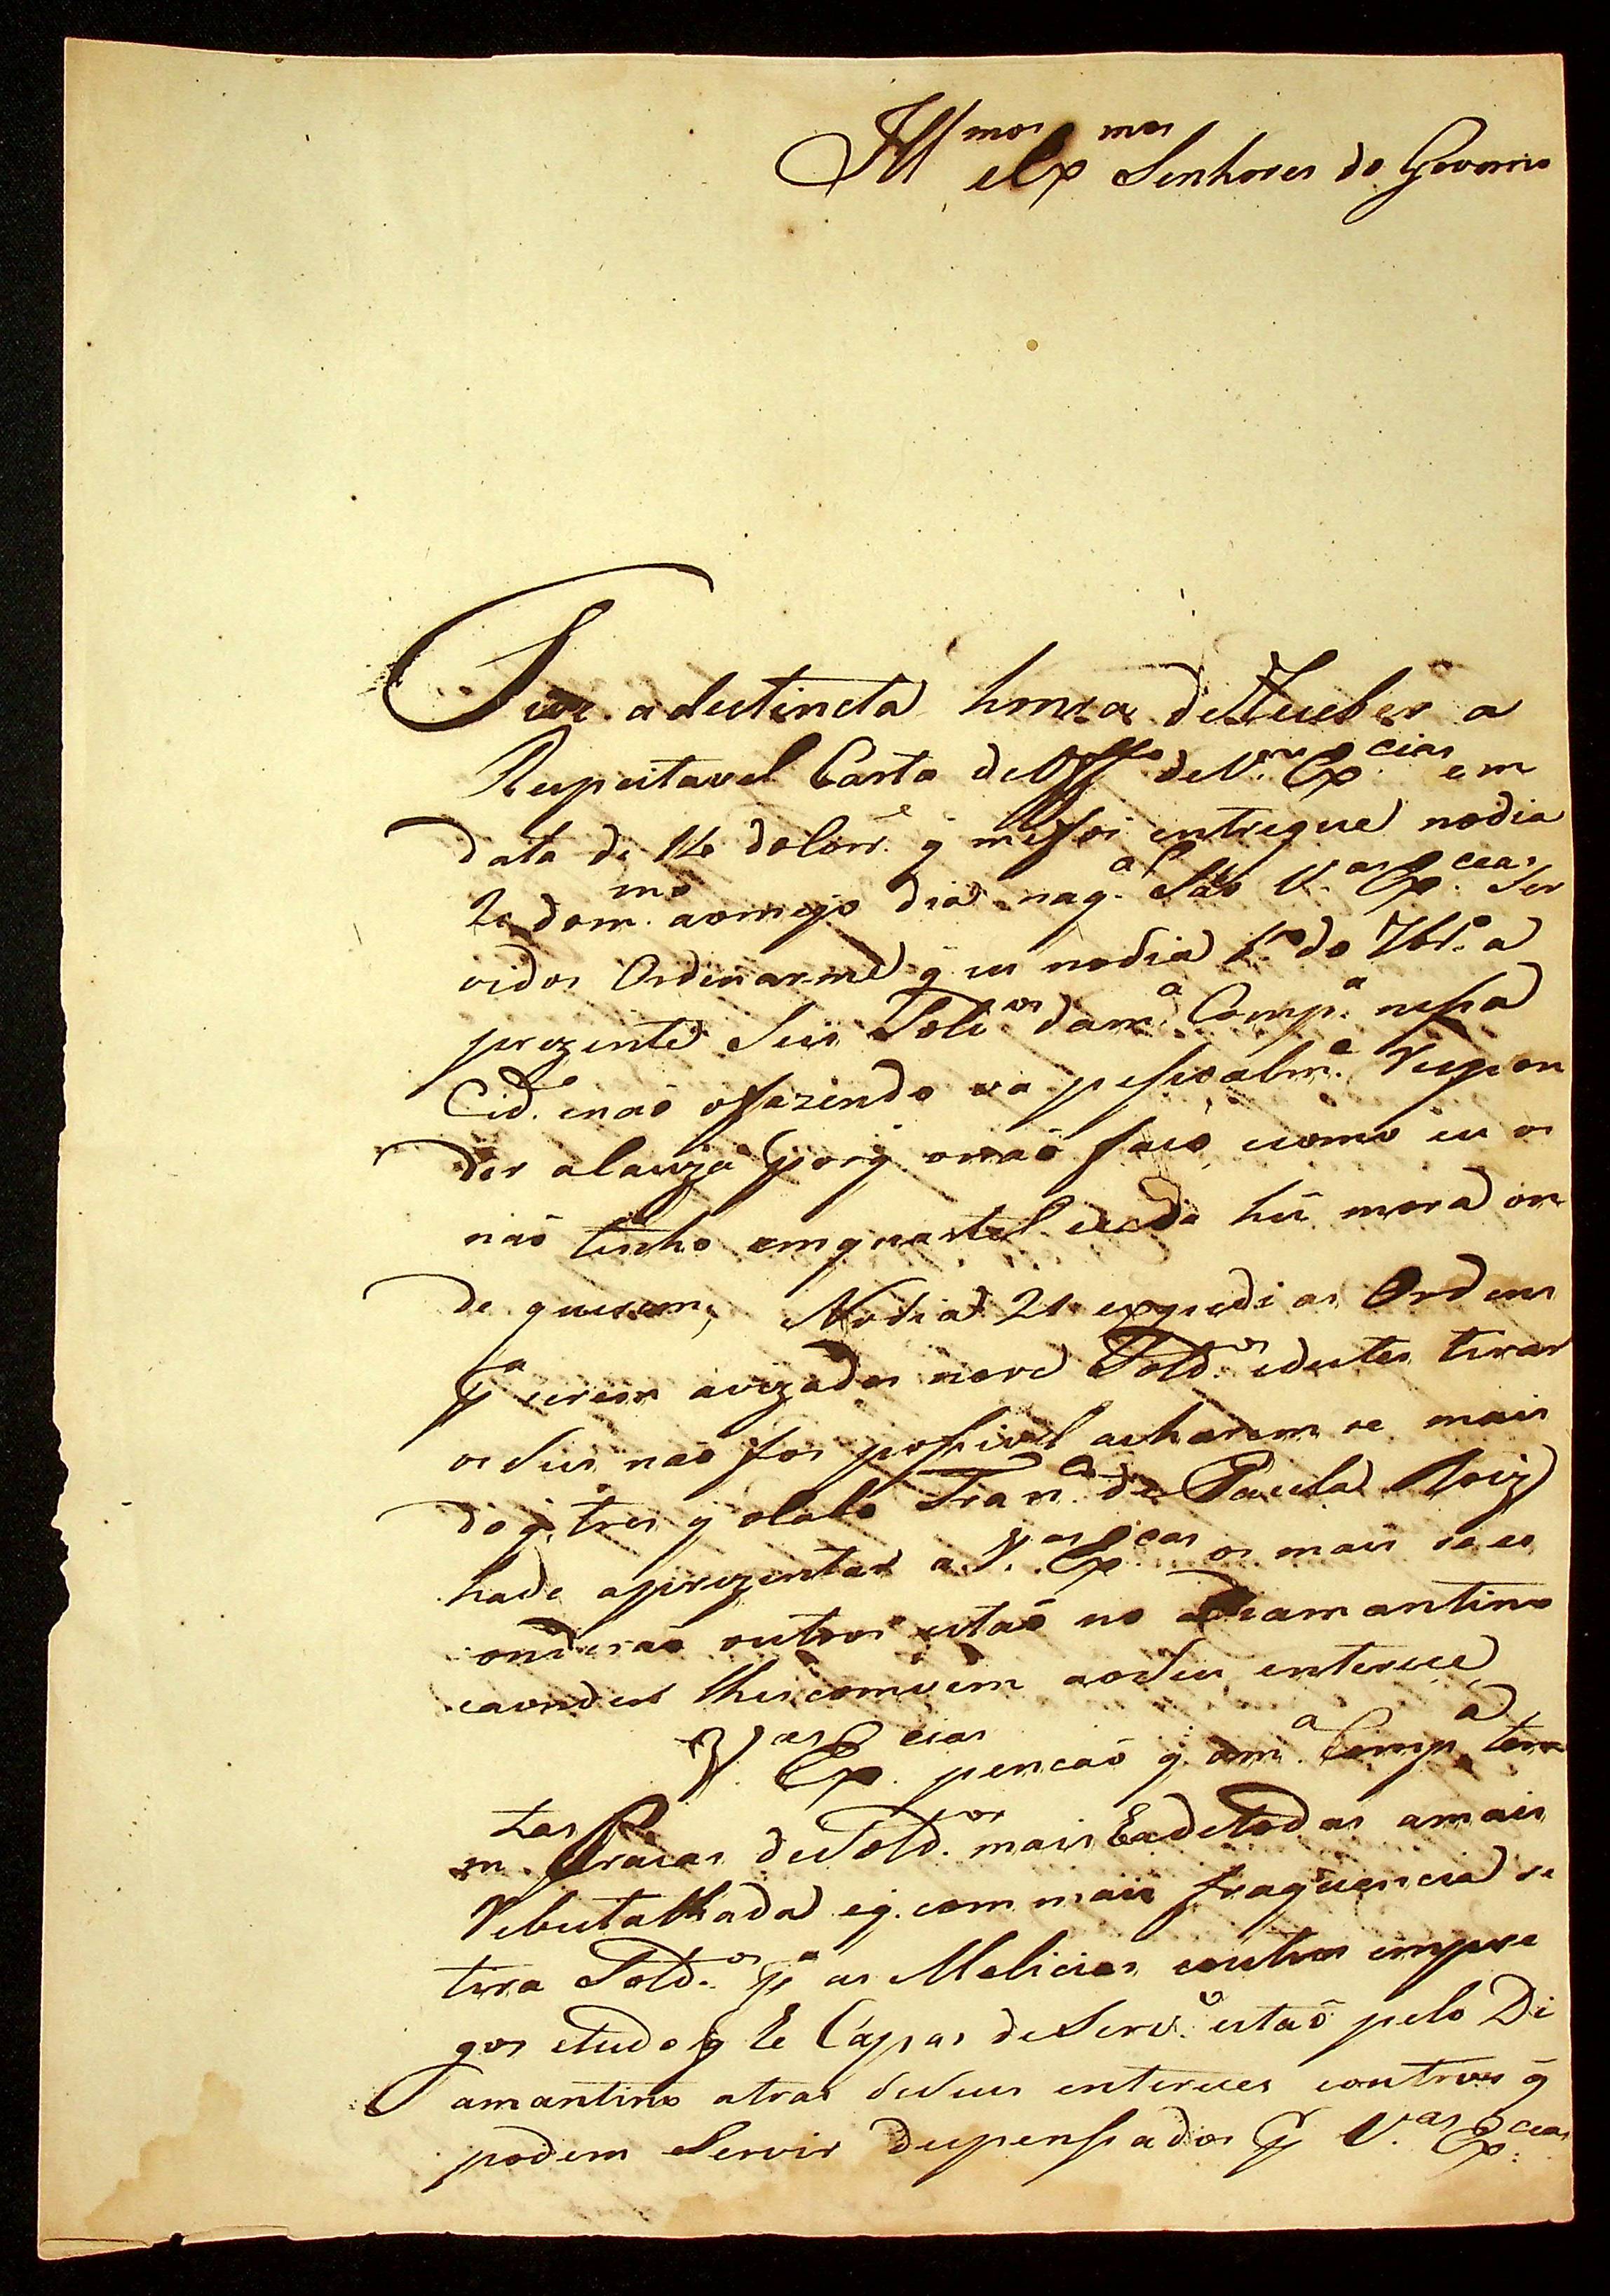 Ill.mos e Ex.mos Senhores do Governo
Tive a destincta honra de Receber a
Respeitavel Carta de Off.o de V.as Ex.cias em
data de 16 do Corr.e q̃ me foi entregue no dia
20 do m.mo ao meyo dia na q.al São V.as Ex.ceas Ser
vidos Ordenar-me q̃ eu no dia 1.o do 7br.o a
prezente Seis Sold.os da m.a Comp.a nessa
Cid.e e não o fazendo va pessoalm.e Respon
der a Cauza porq̃ o não faço, como eu os
não tenho em quartel e cada hũ mora on
de querem, No dia 21 expedi as Ordens
p.a serem avizados nove Sold.os e destes tirar
os Seis não foi possivel acharem se mais
do q̃ tres q̃ o Cabo Fran.co de Paula Roiz
hade aprezentar a V.as Ex.cas os mais se es
conderão outros estão no Diamantino
e aonde lhes comvem ao Seu enterece
V.as Ex.cias pencão q̃ a m.a Comp.a tem
m.tas Praças de Sold.os mais he de todas a mais
Rebutalhada e q̃ com mais fraquencia se
tira Sold.os p.a as Melicias e outros empre
gos e tudo q̃ he Capas de Serv.o estão pelo Di
amantino atras de Seus entereces e outros q̃
podem Servir despensados p.r V.as Ex.ceas